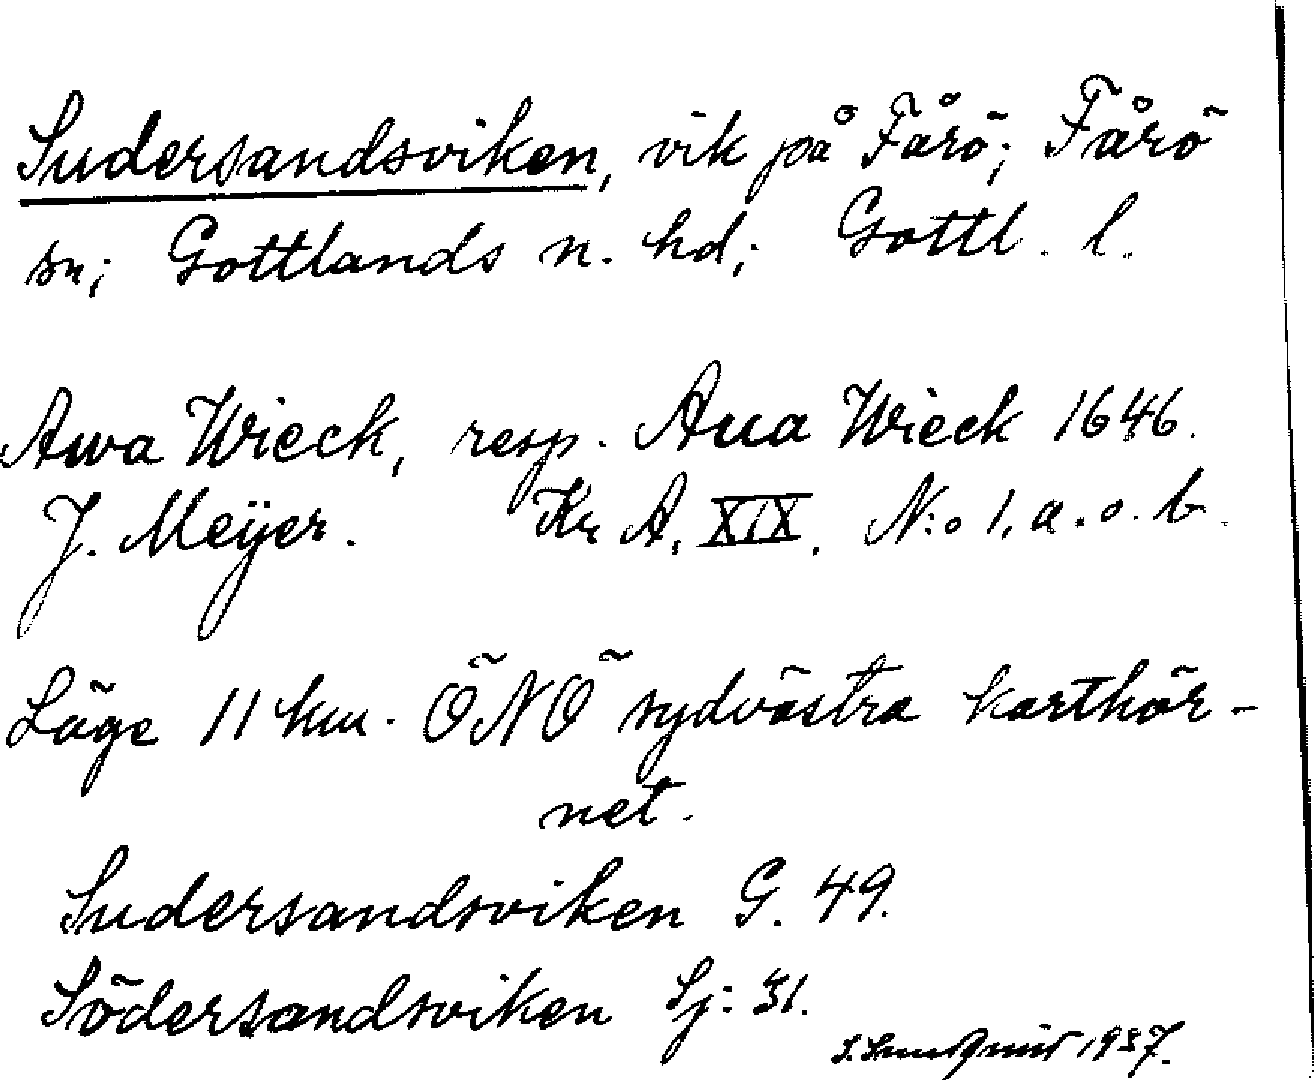 Sudersandsviken, vik på Fårö; Fårö
sn; Gottlands n. hd; Gottl. l.
Awa Wieck, resp. Aua Wieck 1646.
J. Meÿer. Kr A. XIX. N:o 1. a. o. b.
Läge 11 km. ÖNÖ sydvästra karthör-
net.
Sudersandsviken G. 49.
Södersandsviken Sj: 31.
1937.